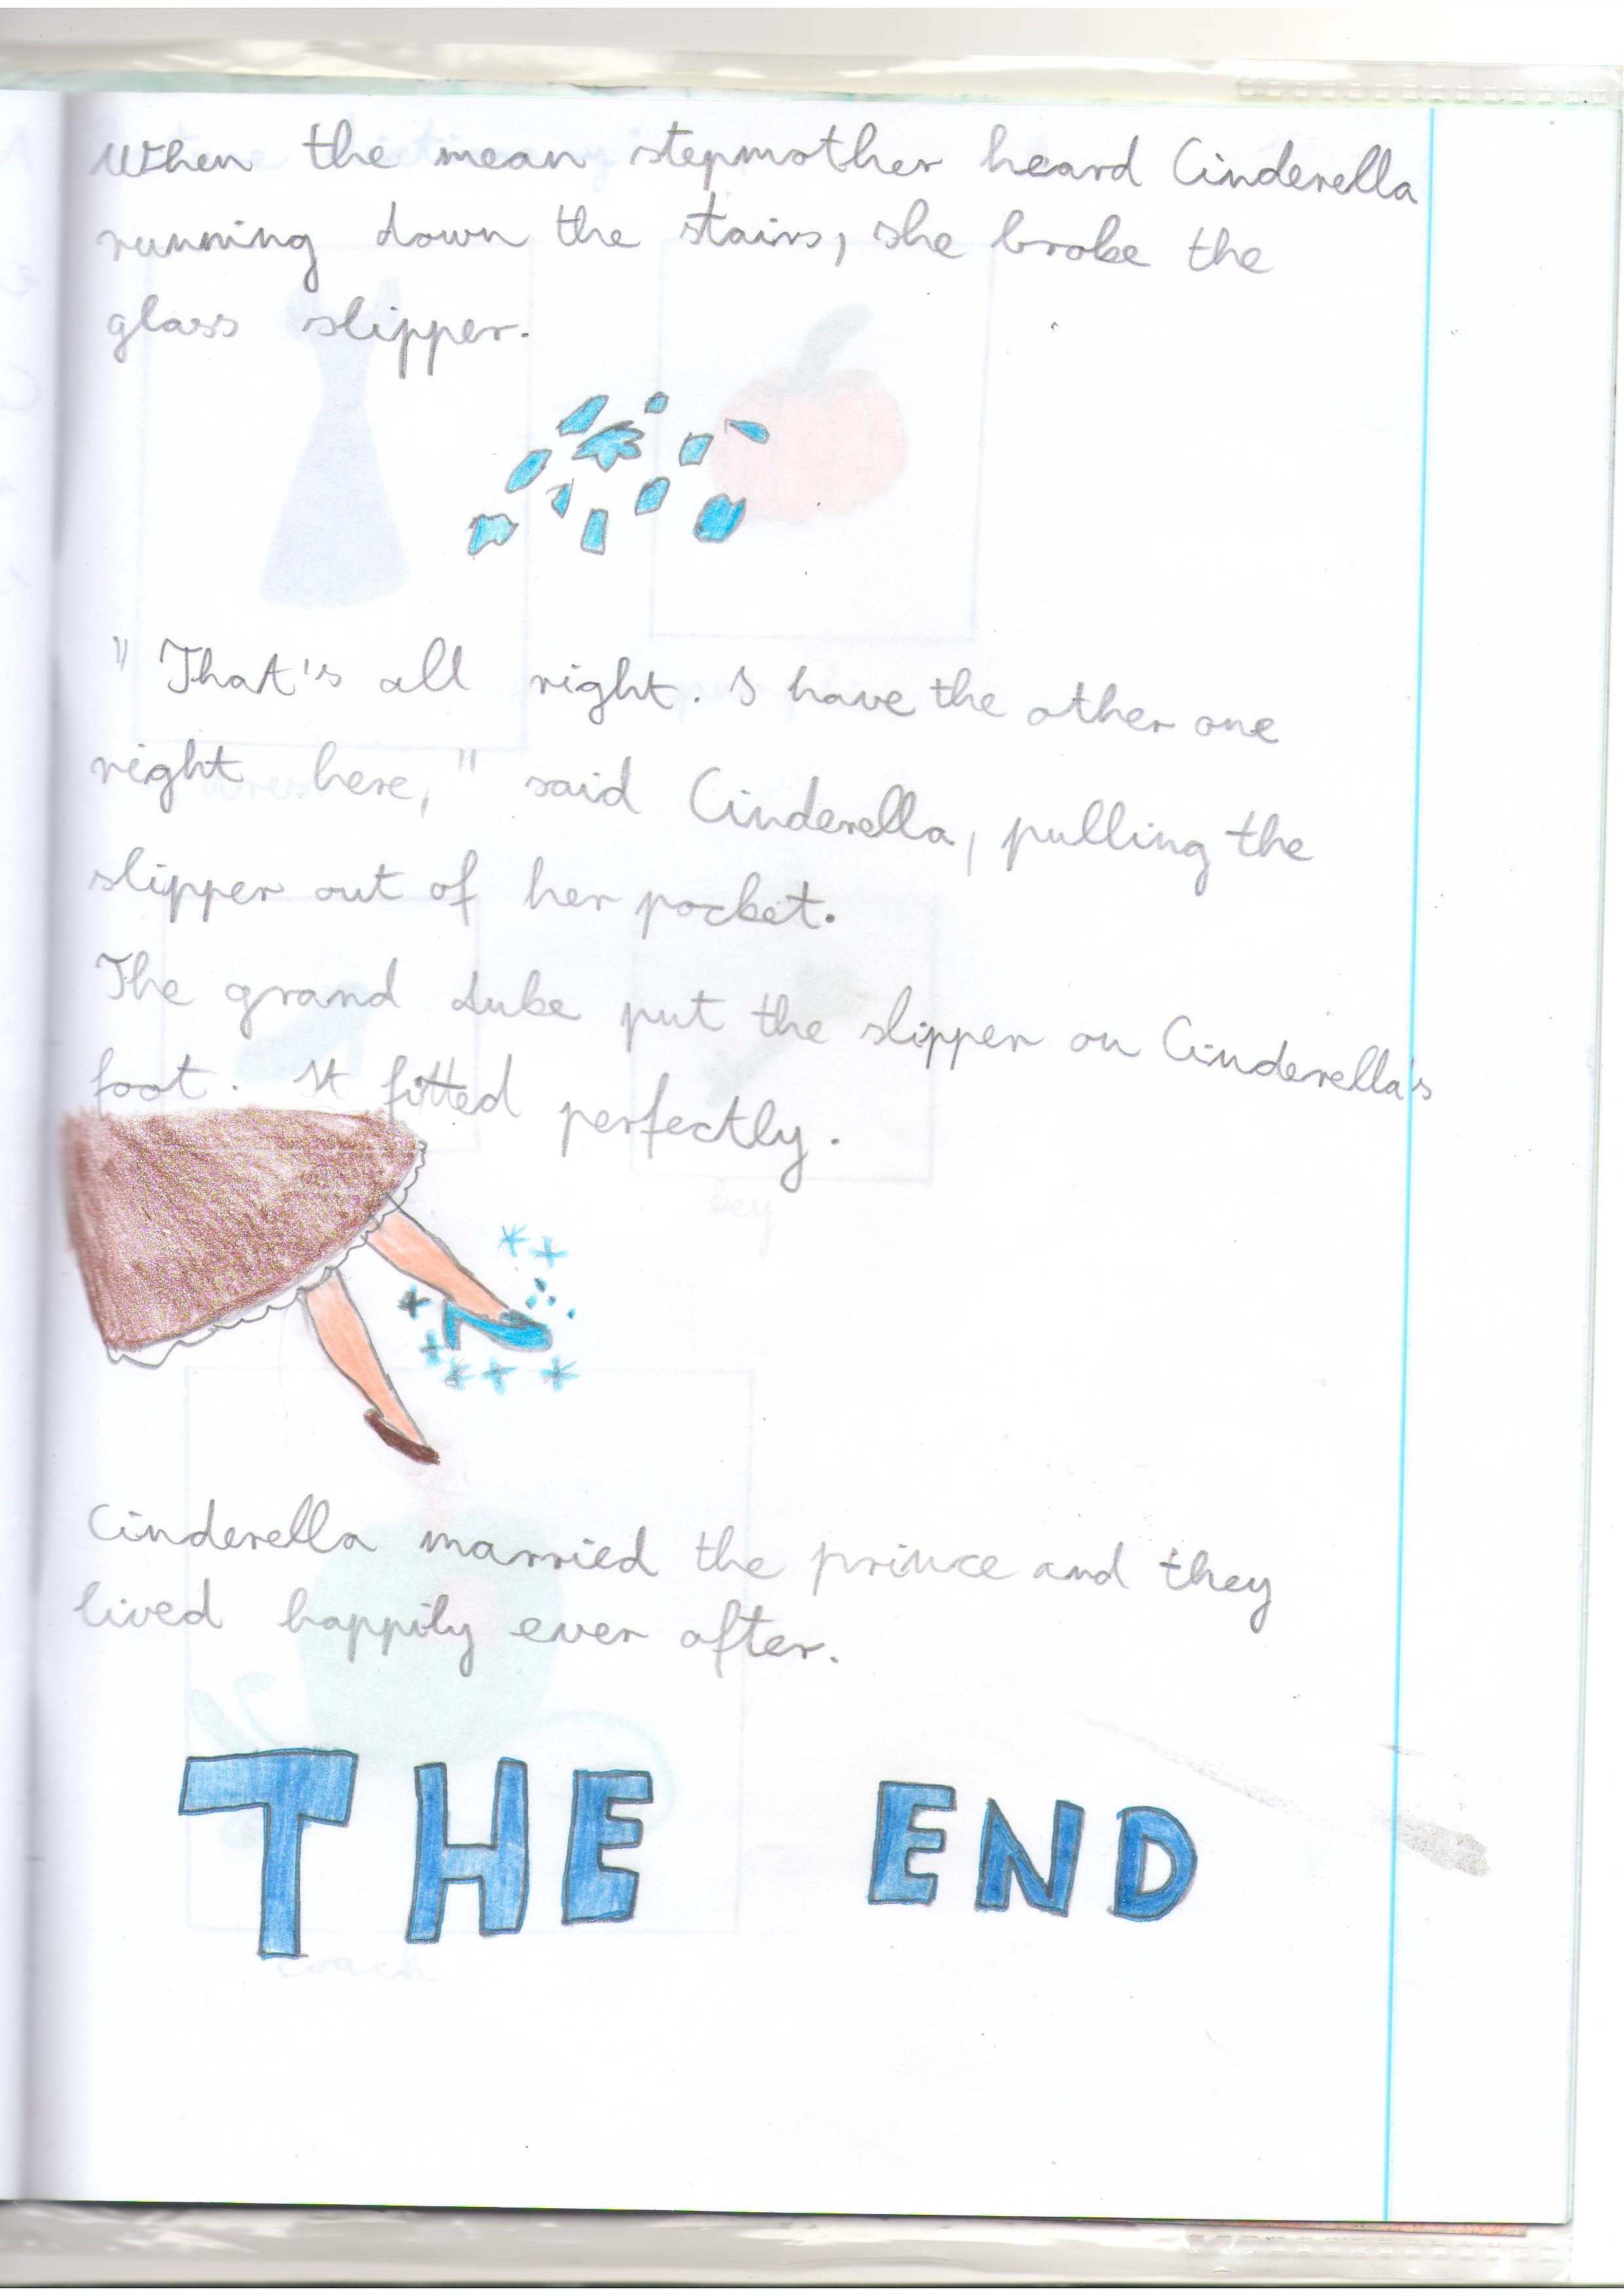 When the mean stepmother heard Cinderella
running down the stairs, she broke the
glass slipper.
"That's all right. I have the other one
right here," said Cinderella, pulling the
slipper out of her pocket.
The grand duke put the slipper on Cinderella's
foot. It fitted perfectly.
key
Cinderella married the prince and they
lived happily ever after.
THE END
coach